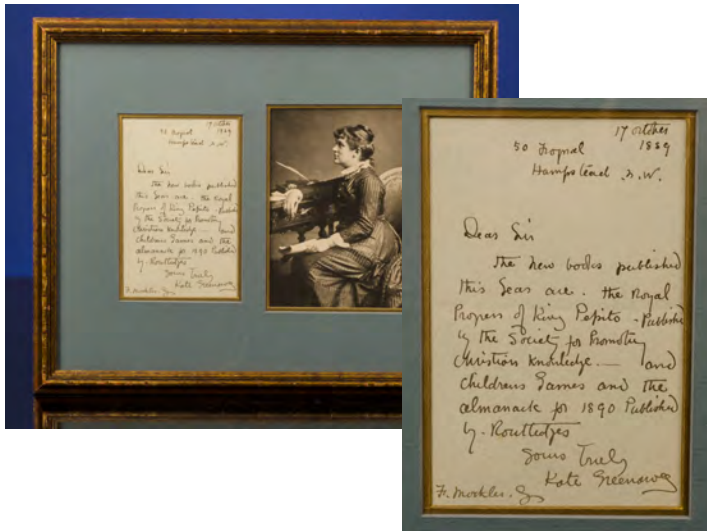 17 October
50 Frognal 1889
Hampstead N.W.
Dear Sir
The new books published
this Year are. the Royal
Progress of King Pepito - Published
by the Society for Promoting
Christian Knowledge — and
Childrens Games and the
almanack for 1890 Published
by - Routledges
Yours Truly
Kate Greenaway
F. Mockler. Esq
17 October
50 Frognal 1889
Hampstead. N.W.
Dear Sir
The new books published
this Year are. the Royal
Progress of King Pepito - Publishe
by the Society for Promoting
Christian Knowledge — and
Childrens Games and the
almanack for 1890 Published
by - Routledges
Yours Truly
Kate Greenaway
F. Mockler. Esq